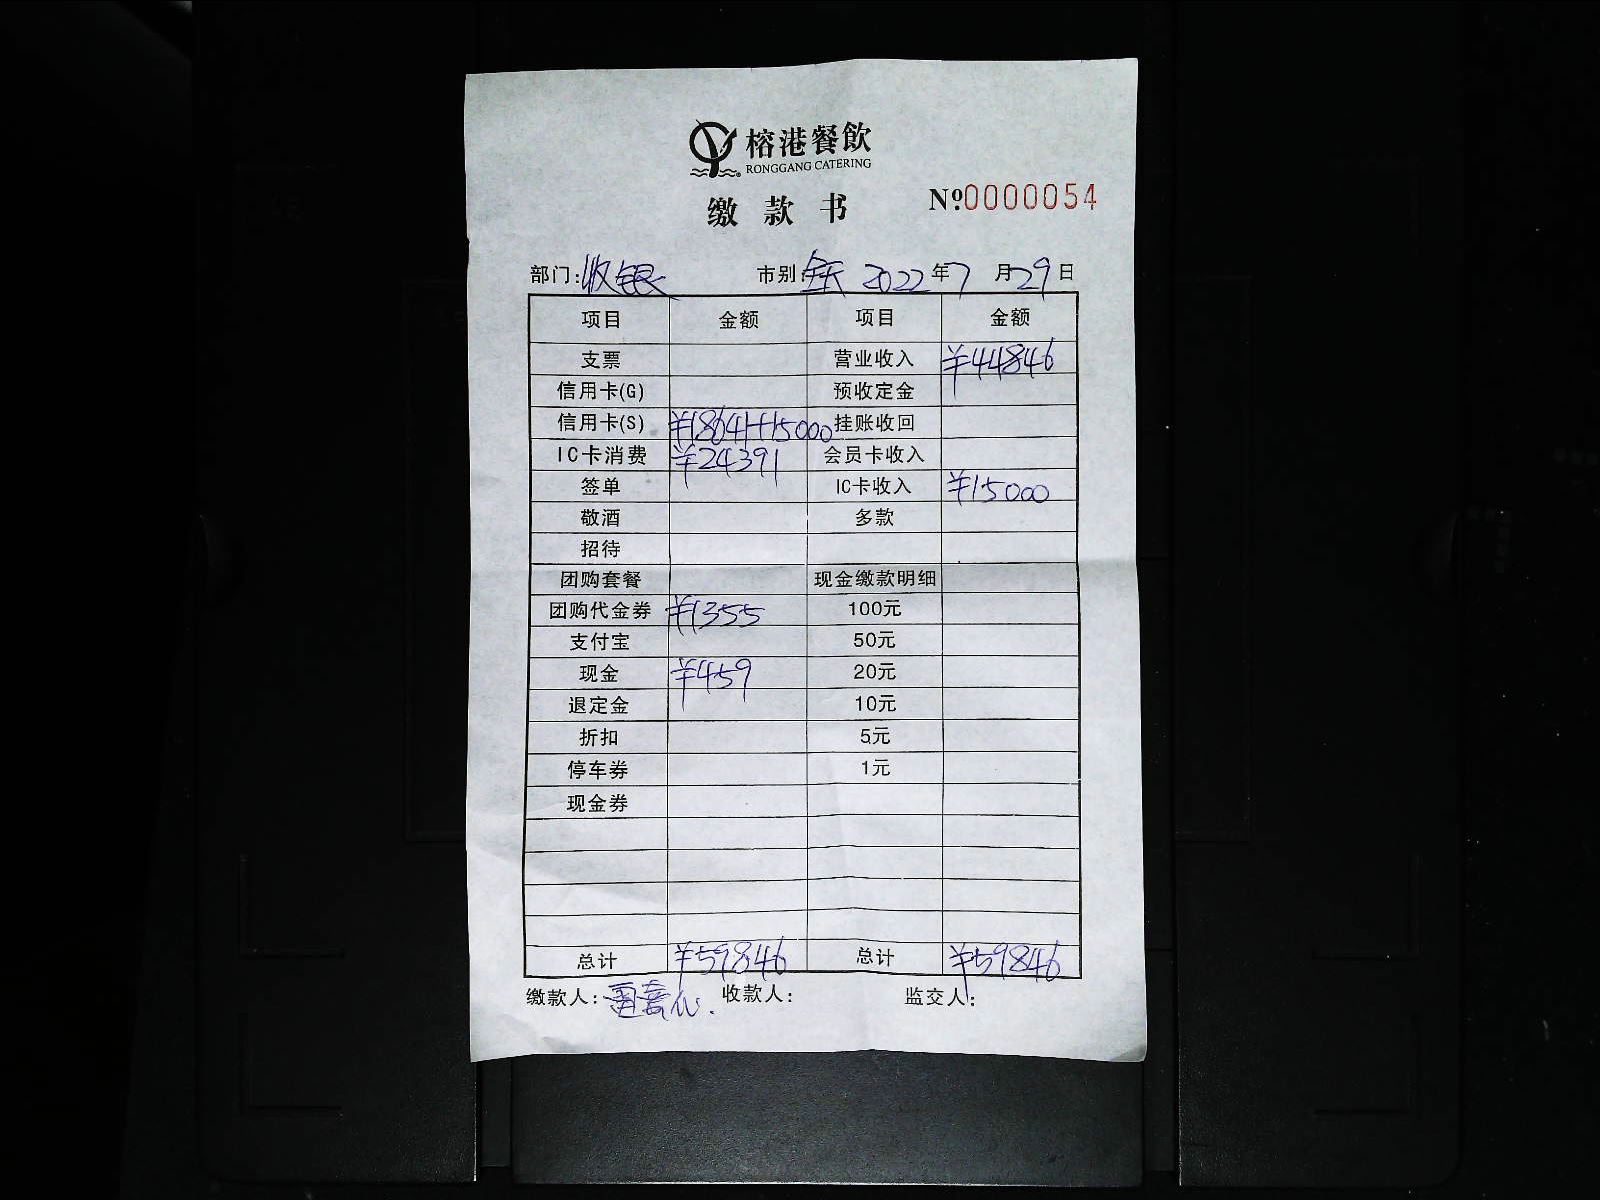 榕港餐飲
RONGGANG CATERING
缴款书 №0000054
部门:收银 市别:全天 2022年7月29日
项目 金额 项目 金额
支票 营业收入 ¥44846
信用卡(G) 预收定金
信用卡(S) ¥18641+15000 挂账收回
IC卡消费 ¥24391 会员卡收入
签单 IC卡收入 ¥15000
敬酒 多款
招待
团购套餐 现金缴款明细
团购代金券 ¥1355 100元
支付宝 50元
现金 ¥459 20元
退定金 10元
折扣 5元
停车券 1元
现金券
总计 ¥59846 总计 ¥59846
缴款人: 收款人: 监交人: